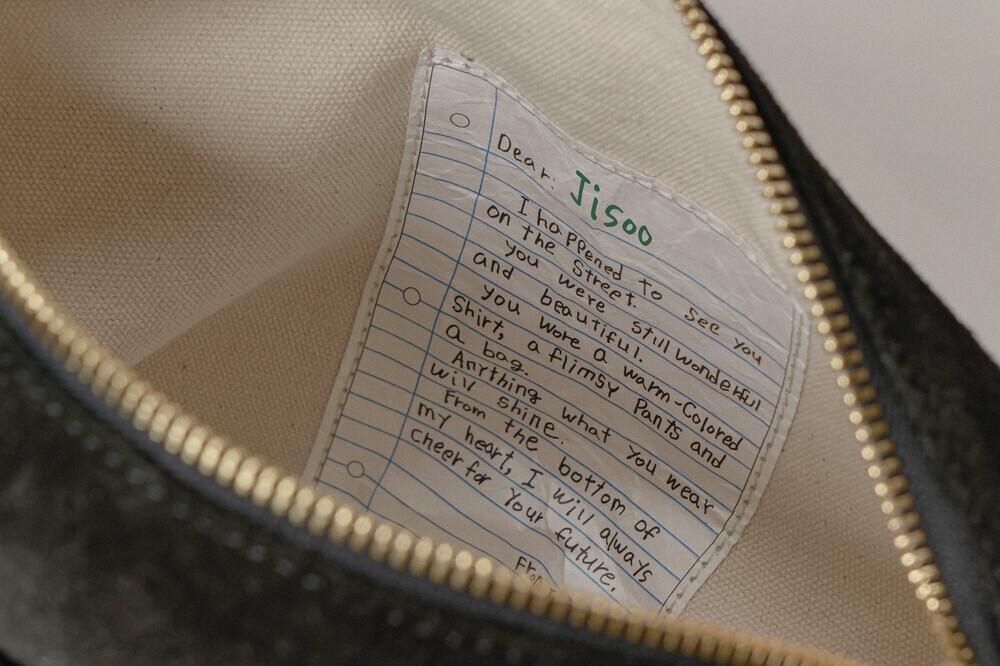 Dear. Jisoo
I happened to see you
on the street.
you were still wonderful
and beautiful.
you wore a warm-colored
shirt, a flimsy pants and
a bag.
Anything what you wear
will shine.
From the bottom of
my heart, I will always
cheer for your future.